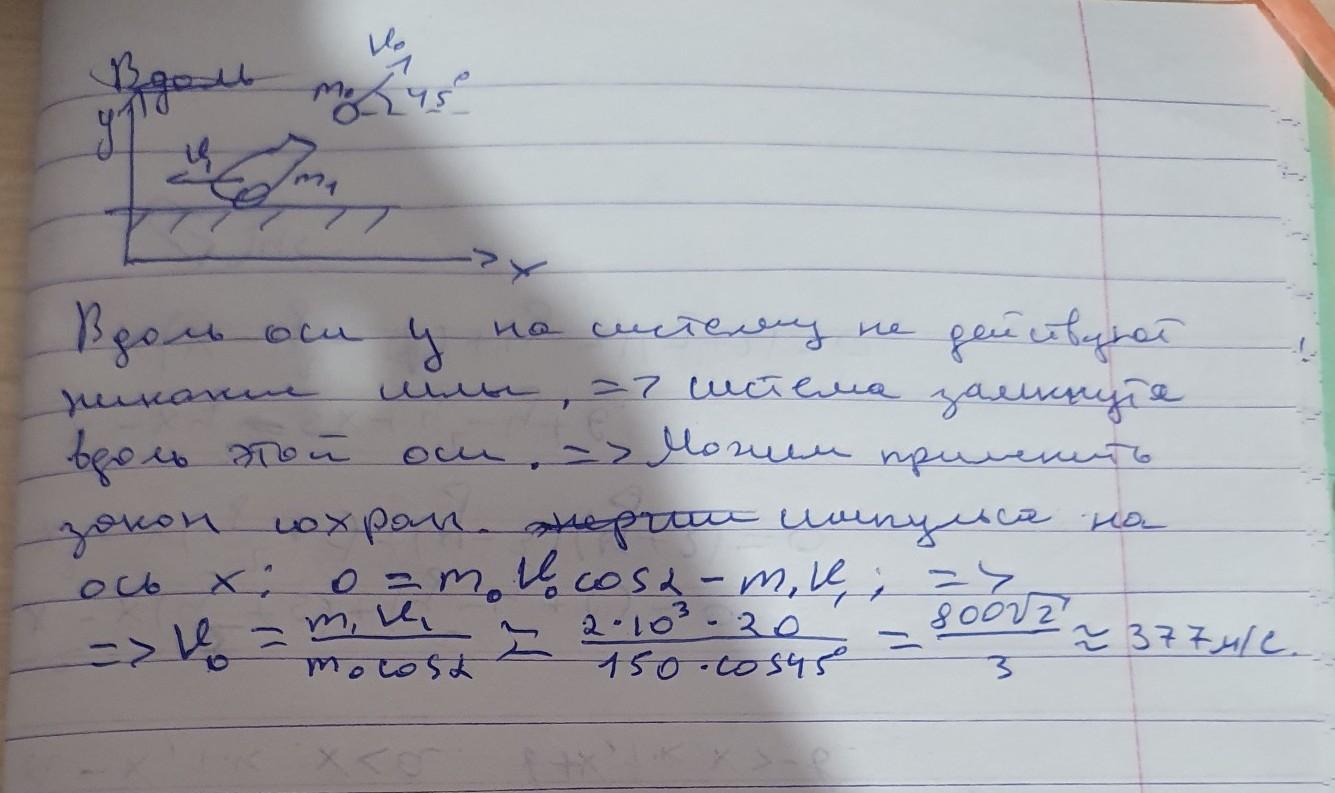 Вдоль
V₀
m₀ 45°
y
V₁
m₁
x
Вдоль оси y на систему не действуют
никакие силы, => система замкнута
вдоль этой оси. => Можем применить
закон сохран. энергии импульса на
ось x: 0 = m₀V₀cosα - m₁V₁; =>
=> V₀ = m₁V₁/m₀cosα = 2·10³·20/150·cos45° = 800√2/3 ≈ 377 м/с.